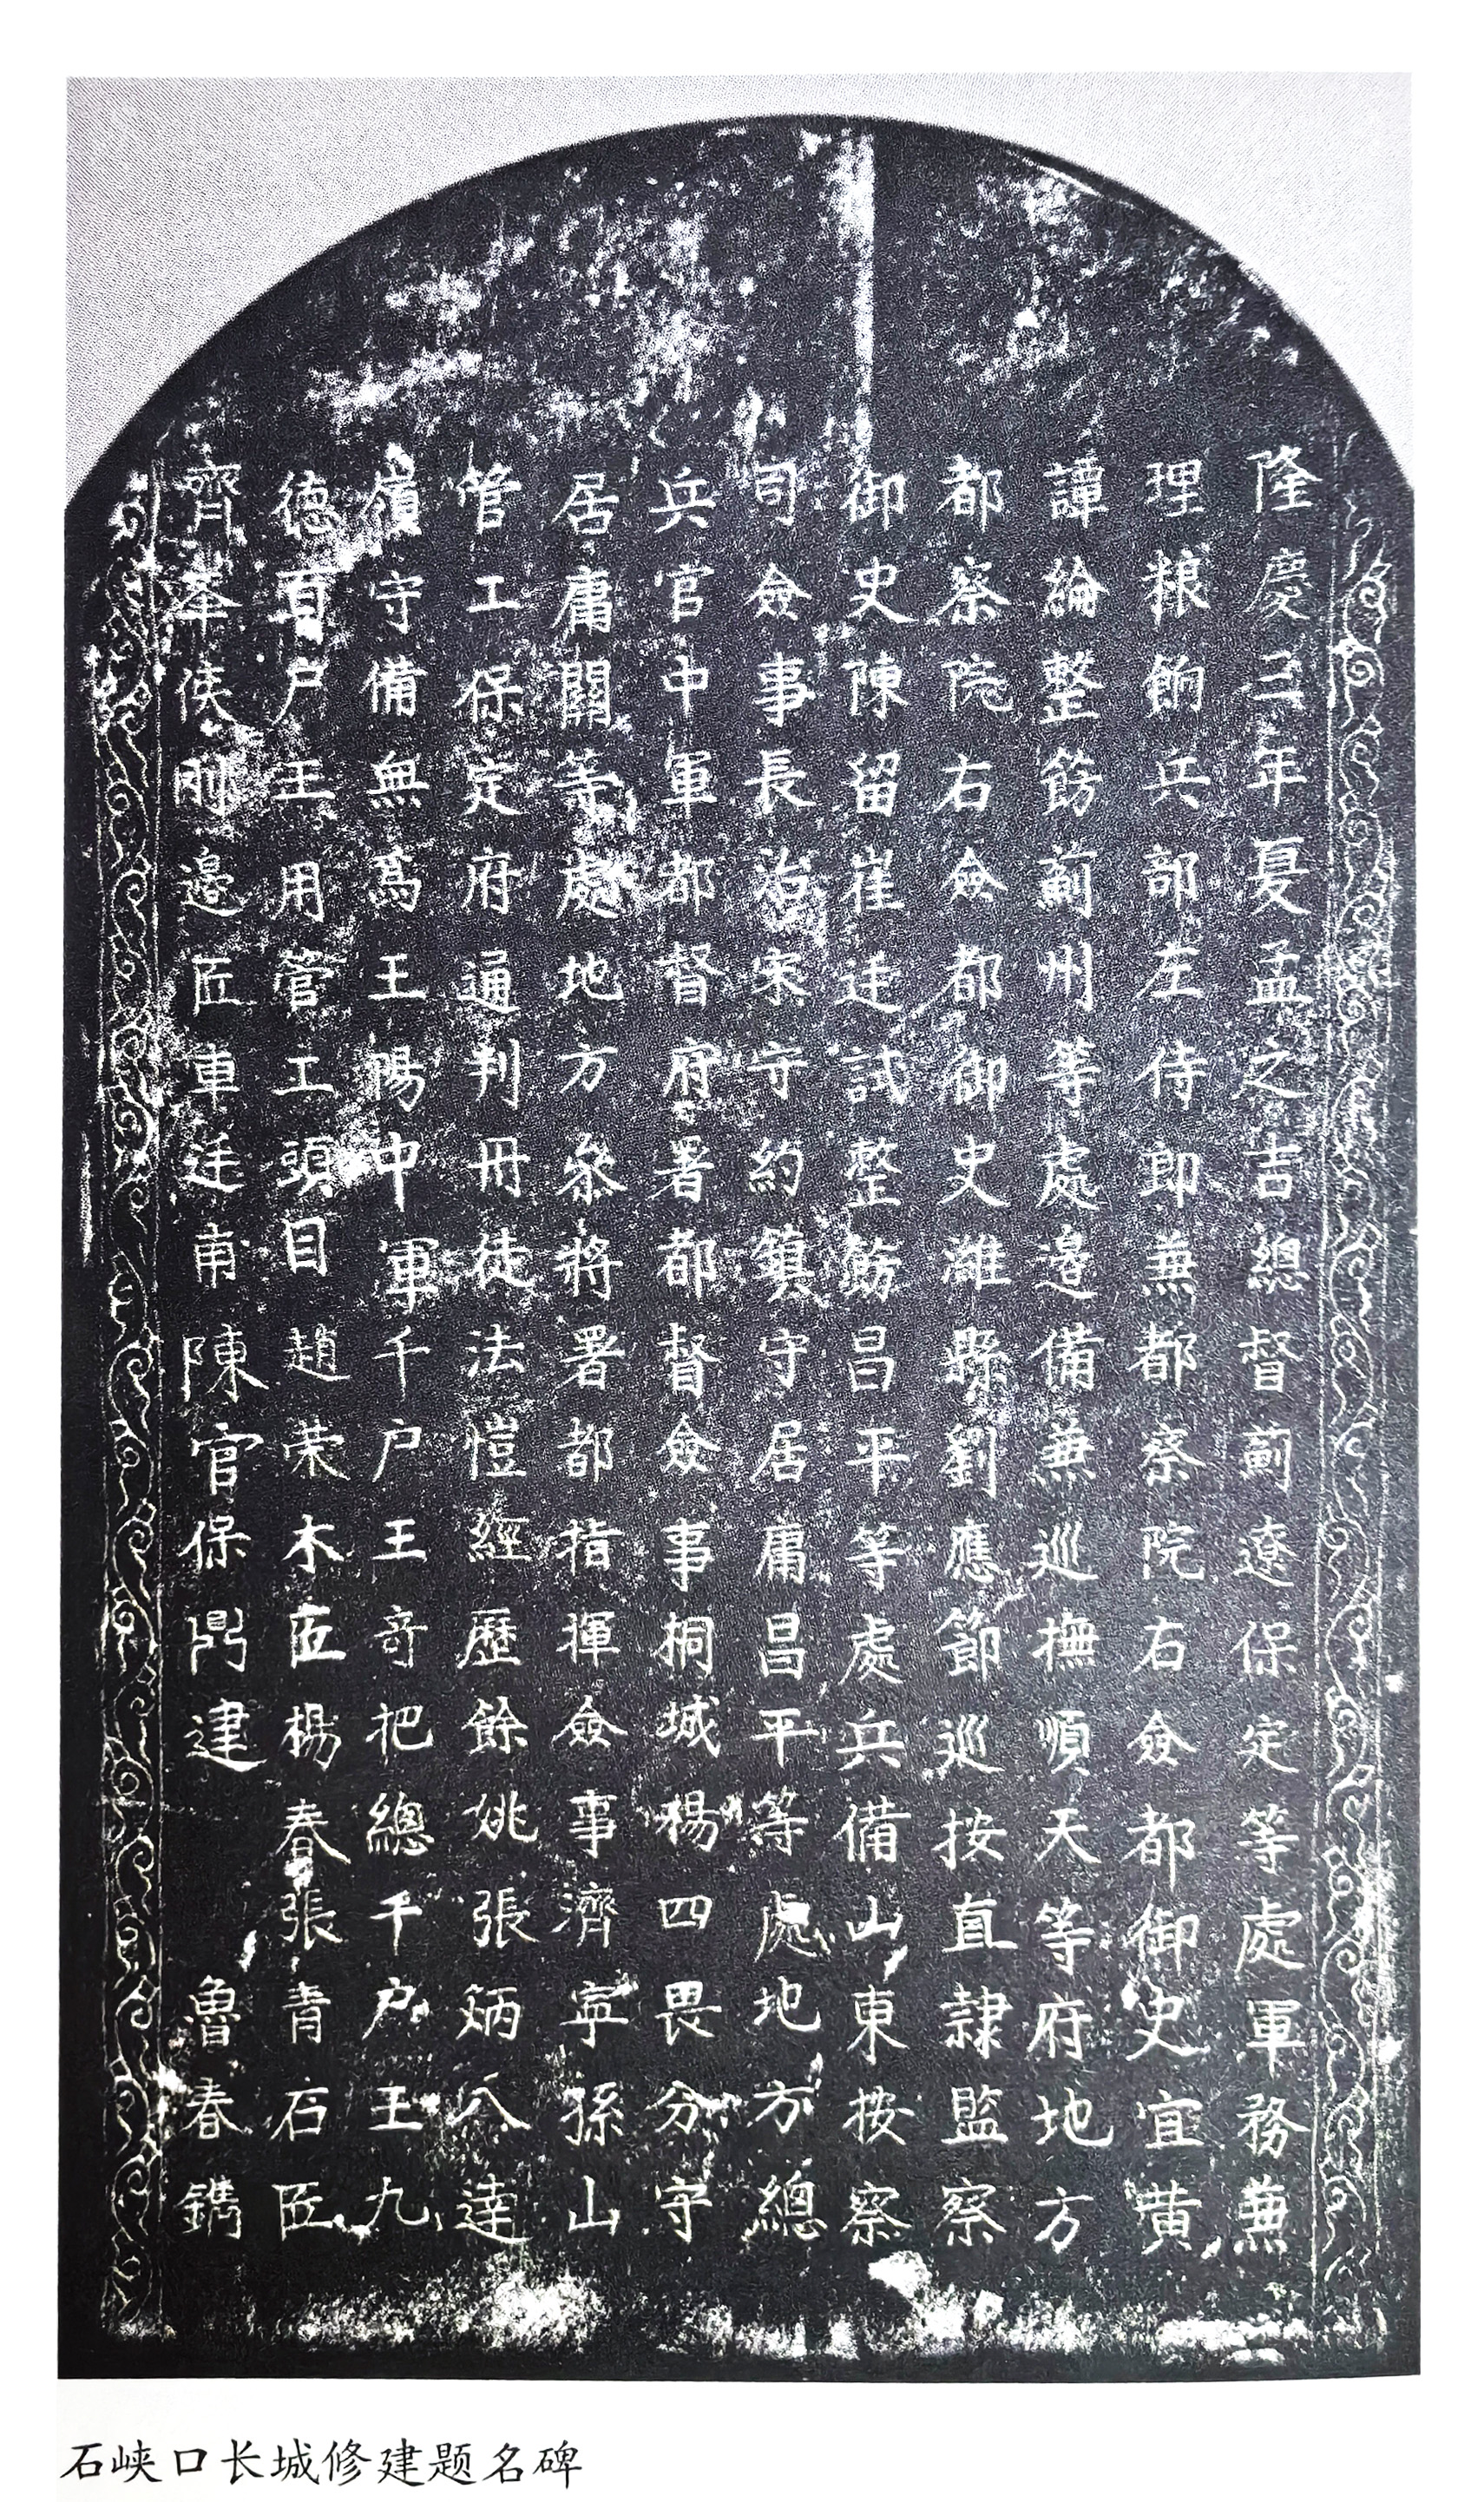 隆慶三年夏孟之吉總督薊遼保定等處軍務兼
理粮餉兵部左侍郎兼都察院右僉都御史宜黄
譚綸整飭薊州等處邊備兼巡撫順天等府地方
都察院右僉都御史濰縣劉應節巡按直隸監察
御史陳留崔廷試整飭昌平等處兵備山東按察
司僉事長治宋守約鎮守居庸昌平等處地方總
兵官中軍都督府署都督僉事桐城楊四畏分守
居庸關等處地方叅將署都指揮僉事濟寧孫山
管工保定府通判冊徒法愷經歷餘姚張炳八達
嶺守備無爲王暘中軍千户王竒把總千户王九
德百户王用管工頭目趙荣木匠楊春張青石匠
齊奉侯剛邊匠車廷甫陳官保鬥建 魯春鐫
石峡口长城修建题名碑